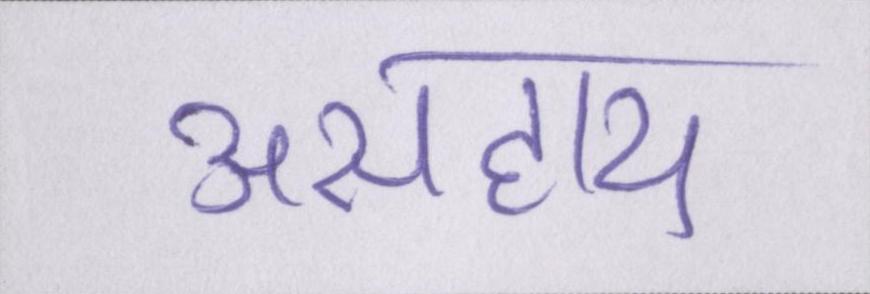 असहाय